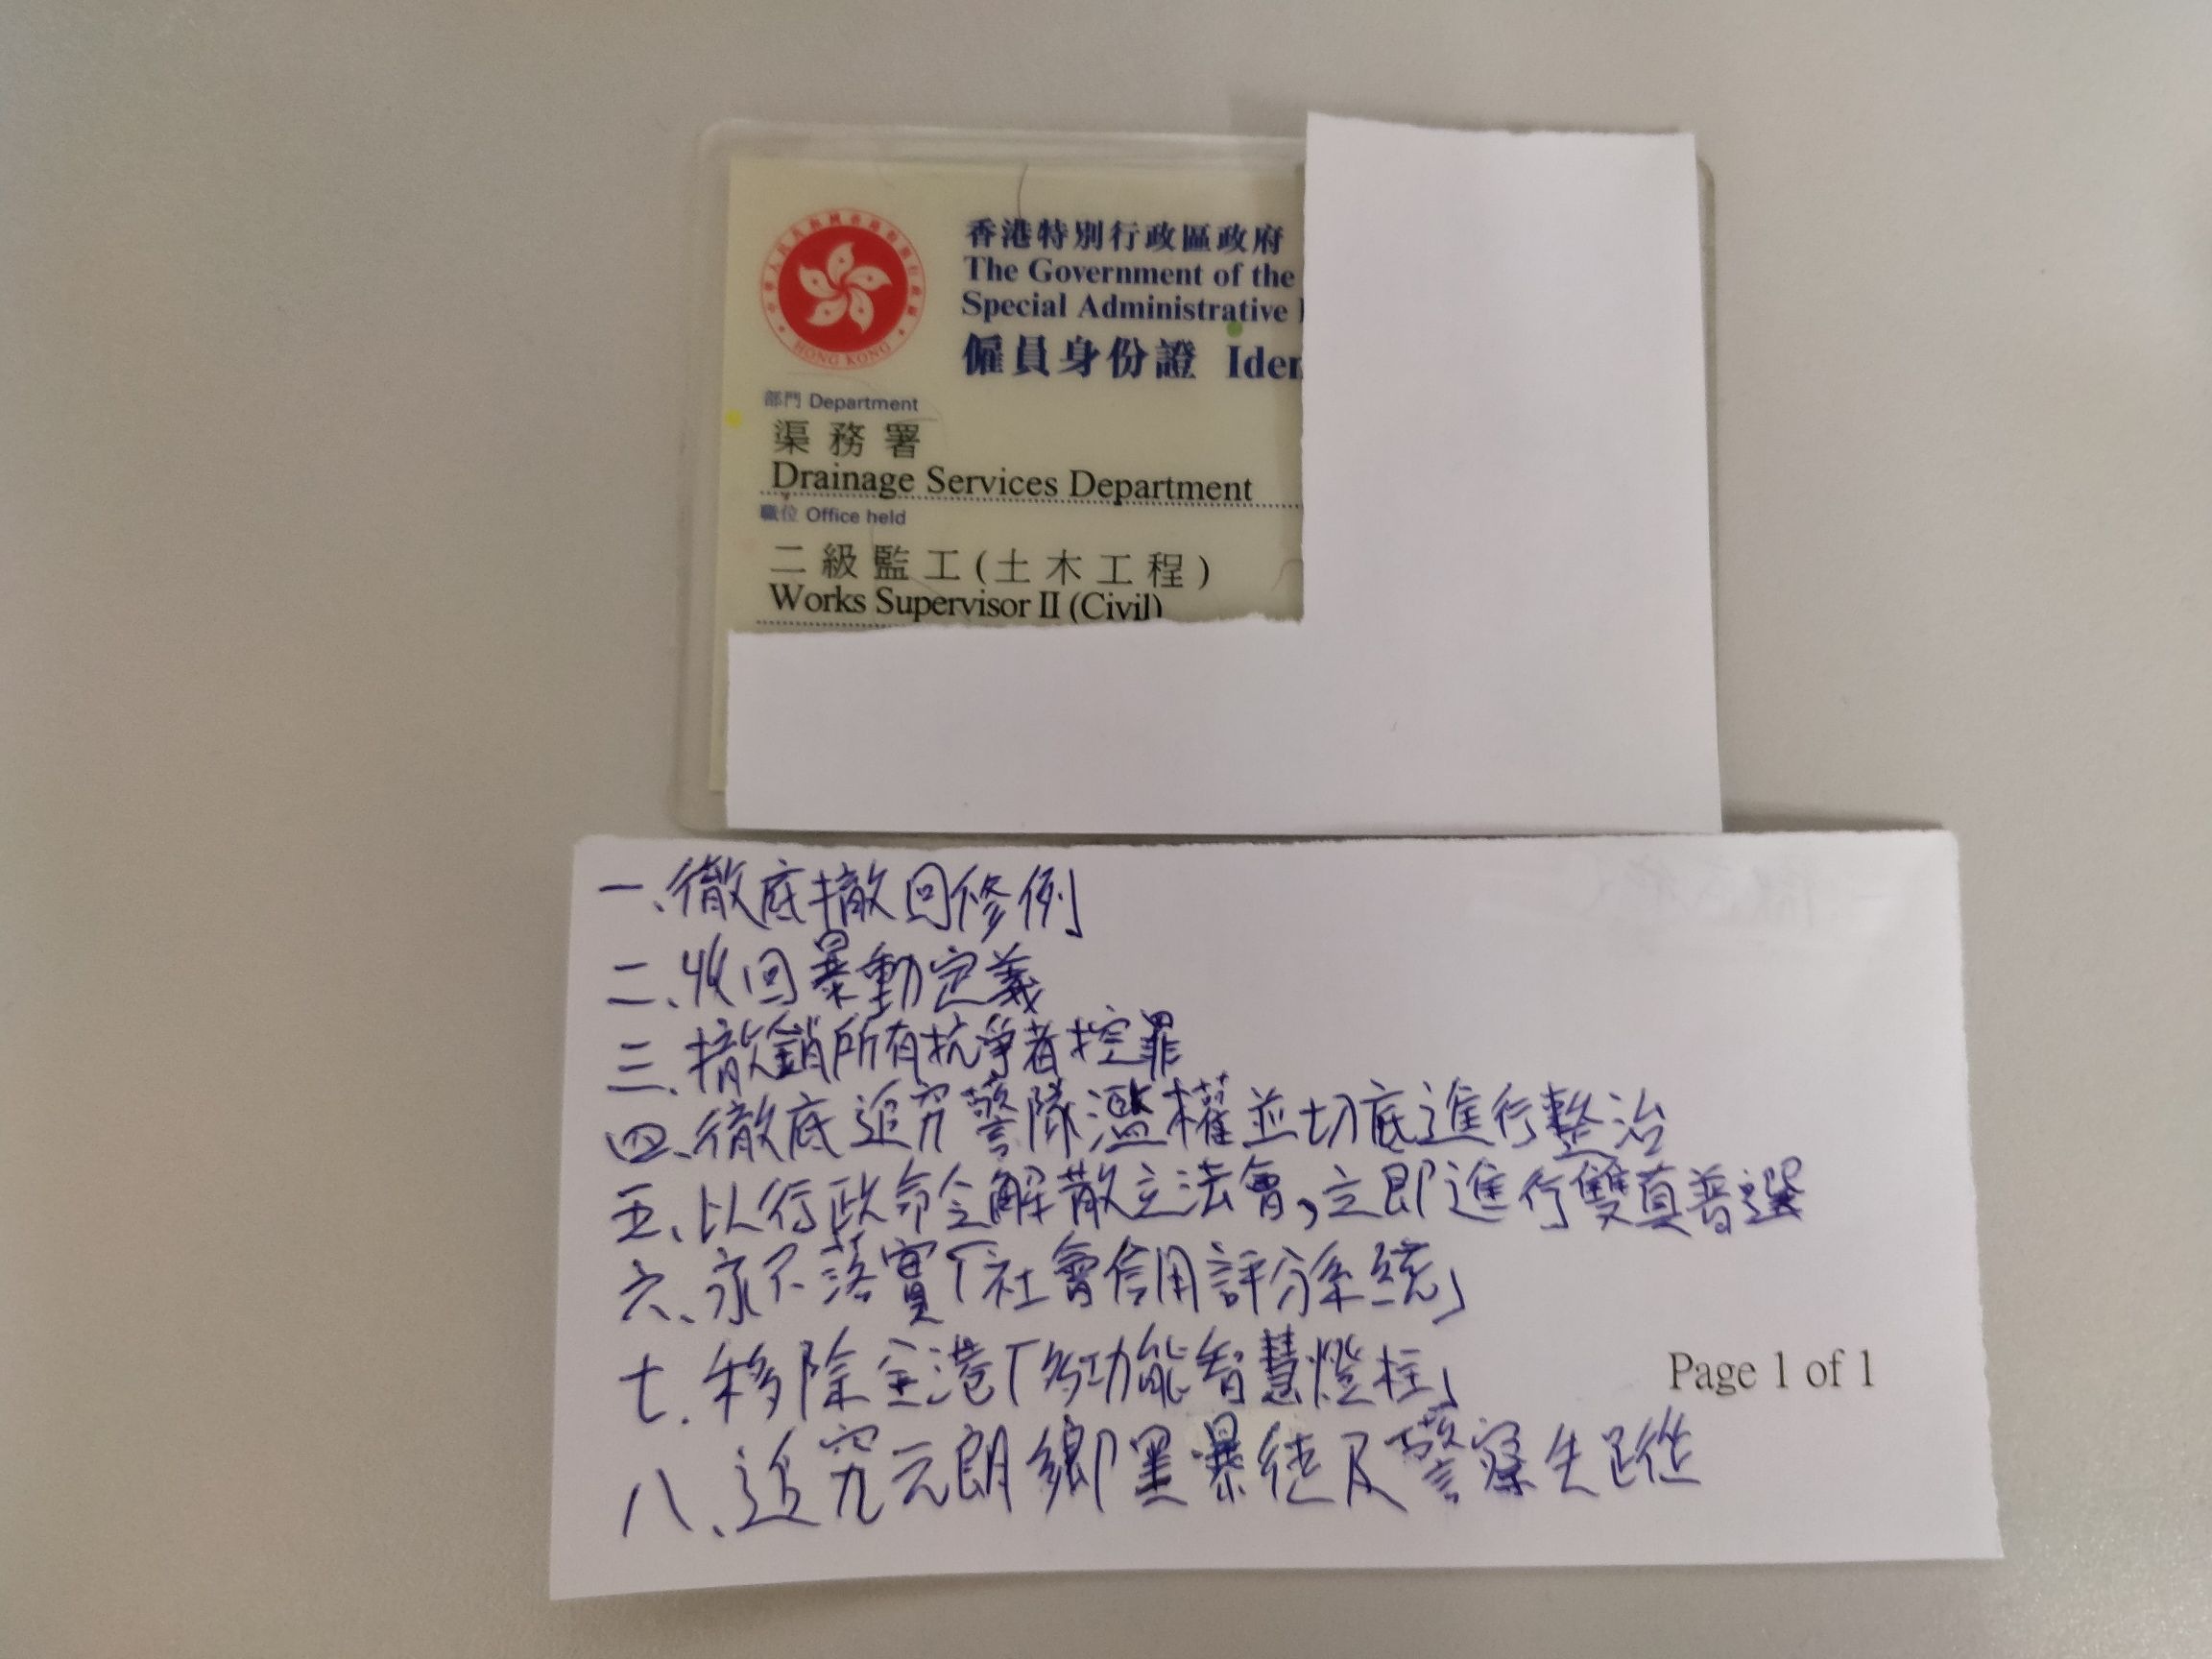 香港特別行政區政府
The Government of the
Special Administrative
僱員身份證 Iden
HONG KONG
部門 Department
渠務署
Drainage Services Department
職位 Office held
二級監工(土木工程)
Works Supervisor II (Civil)
一、徹底撤回修例
二、收回暴動定義
三、撤銷所有抗爭者控罪
四、徹底追究警隊濫權並切底進行整治
五、以行政命令解散立法會,立即進行雙真普選
六、永不落實「社會信用評分系統」
七、移除全港「多功能智慧燈柱」
Page 1 of 1
八、追究元朗鄉黑暴徒及警察失蹤